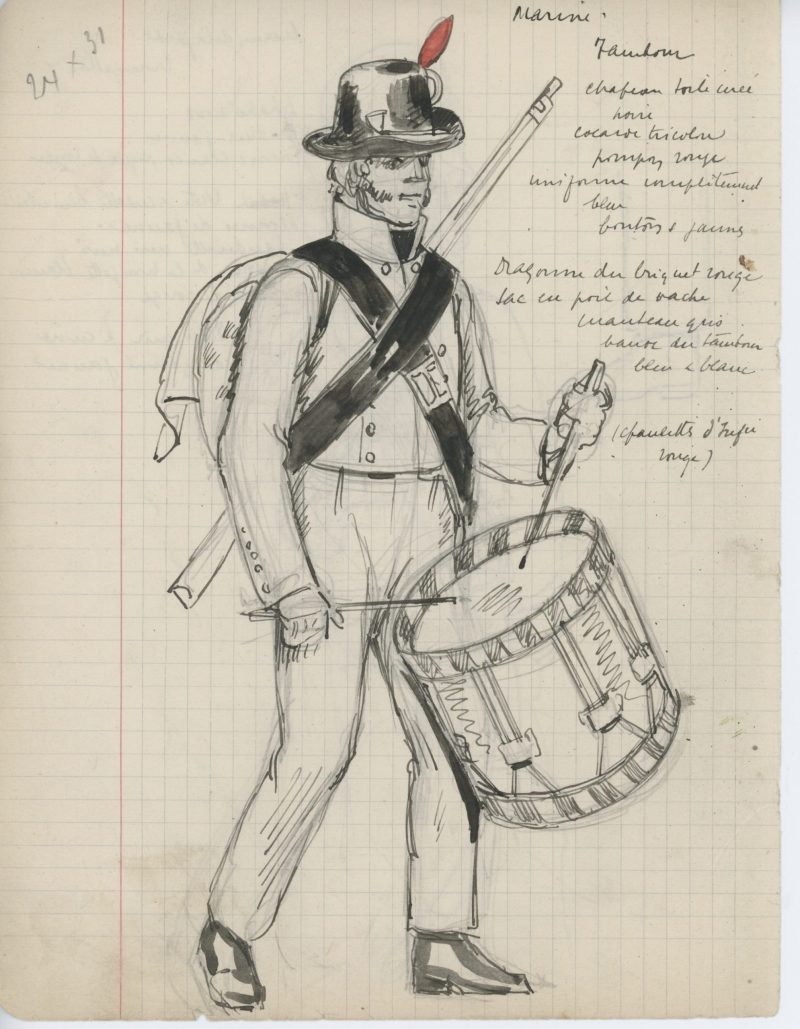 24 x 31
Marine.
Tambour
chapeau toile cirée
noire
cocarde tricolore
pompon rouge
uniforme complètement
bleu
boutons jaunes
Dragonne du briquet rouge
Sac en poil de vache
manteau gris.
bande du tambour
bleu & blanc
(épaulettes d'
rouge)